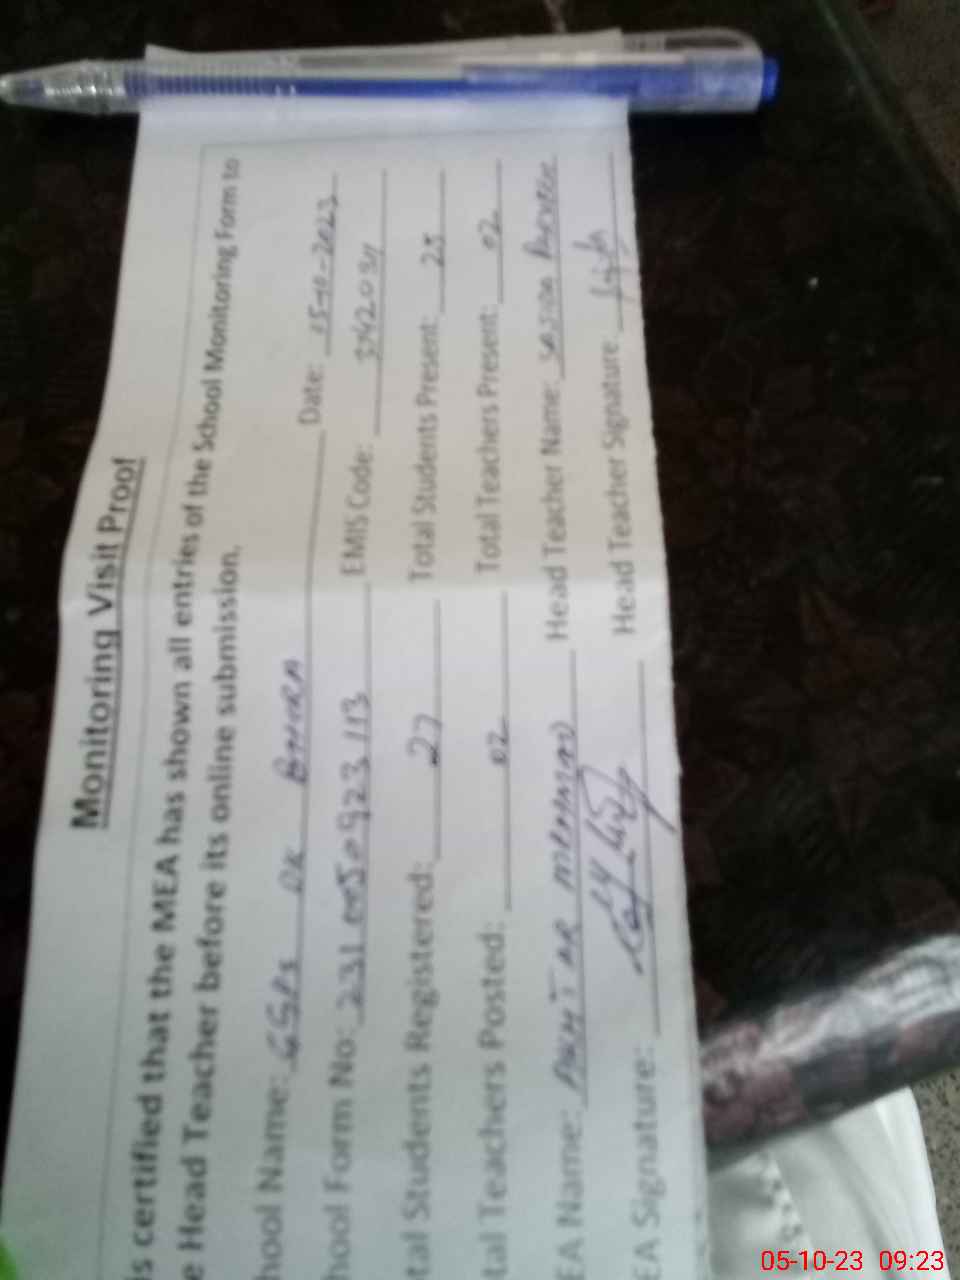 Monitoring Visit Proof
is certified that the MEA has shown all entries of the School Monitoring Form to
e Head Teacher before its online submission.
hool Name: GGPS DK BHERA Date: 15-10-2023
hool Form No: 231 005 0923 113 EMIS Code:
tal Students Registered: 27 Total Students Present: 25
tal Teachers Posted: 02 Total Teachers Present: 02
EA Name: Head Teacher Name:
EA Signature: Head Teacher Signature
05-10-23 09:23